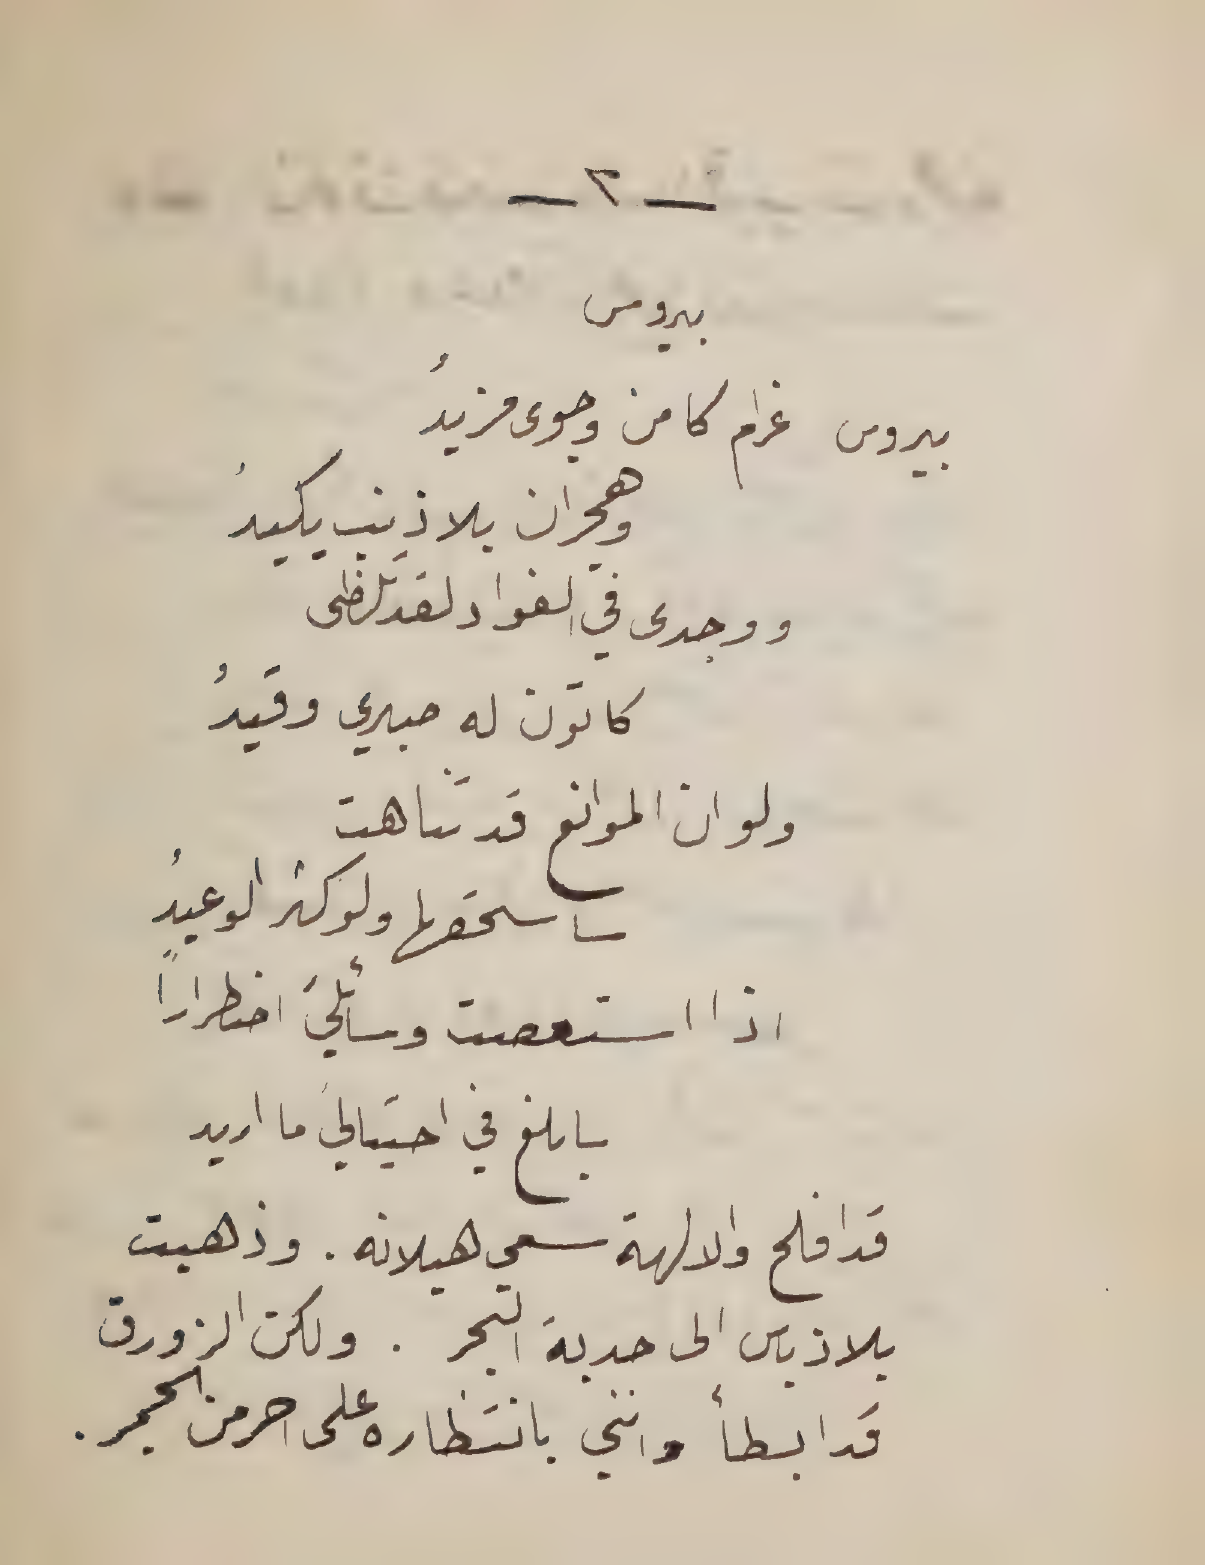 — ٢ —
بيروس
بيروس غرام كامن وجوى مزيدُ
وهجران بلا ذنب يكيدُ
ووجدى في الفواد لقد تلظى
كاتون له صبري وقيدُ
ولو ان الموانع قد تناهت
ساسحقها ولو كثر الوعيدُ
اذا استعصت وسائلي اضطراراً
سابلغ في احتيالي ما اريد
قد افلح والالهة سعي هيلانه . وذهبت
بلا ذياس الى حدبة البحر . ولكن الزورق
قد ابطأ وانني بانتظاره على احر من الجمر .